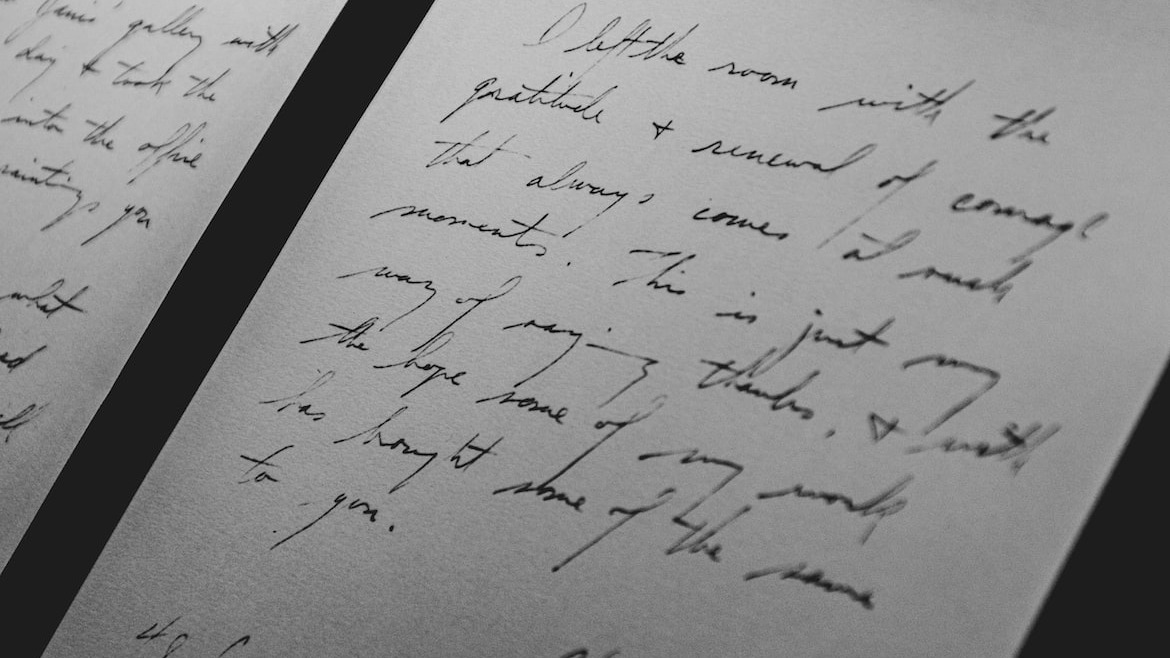 Janis' gallery with
day & took the
into the office
paintings you
what
I left the room with the
gratitude & renewal of courage
that always comes at such
moments. This is just my
way of saying thanks, & with
the hope some of my work
has brought some of the same
to you.